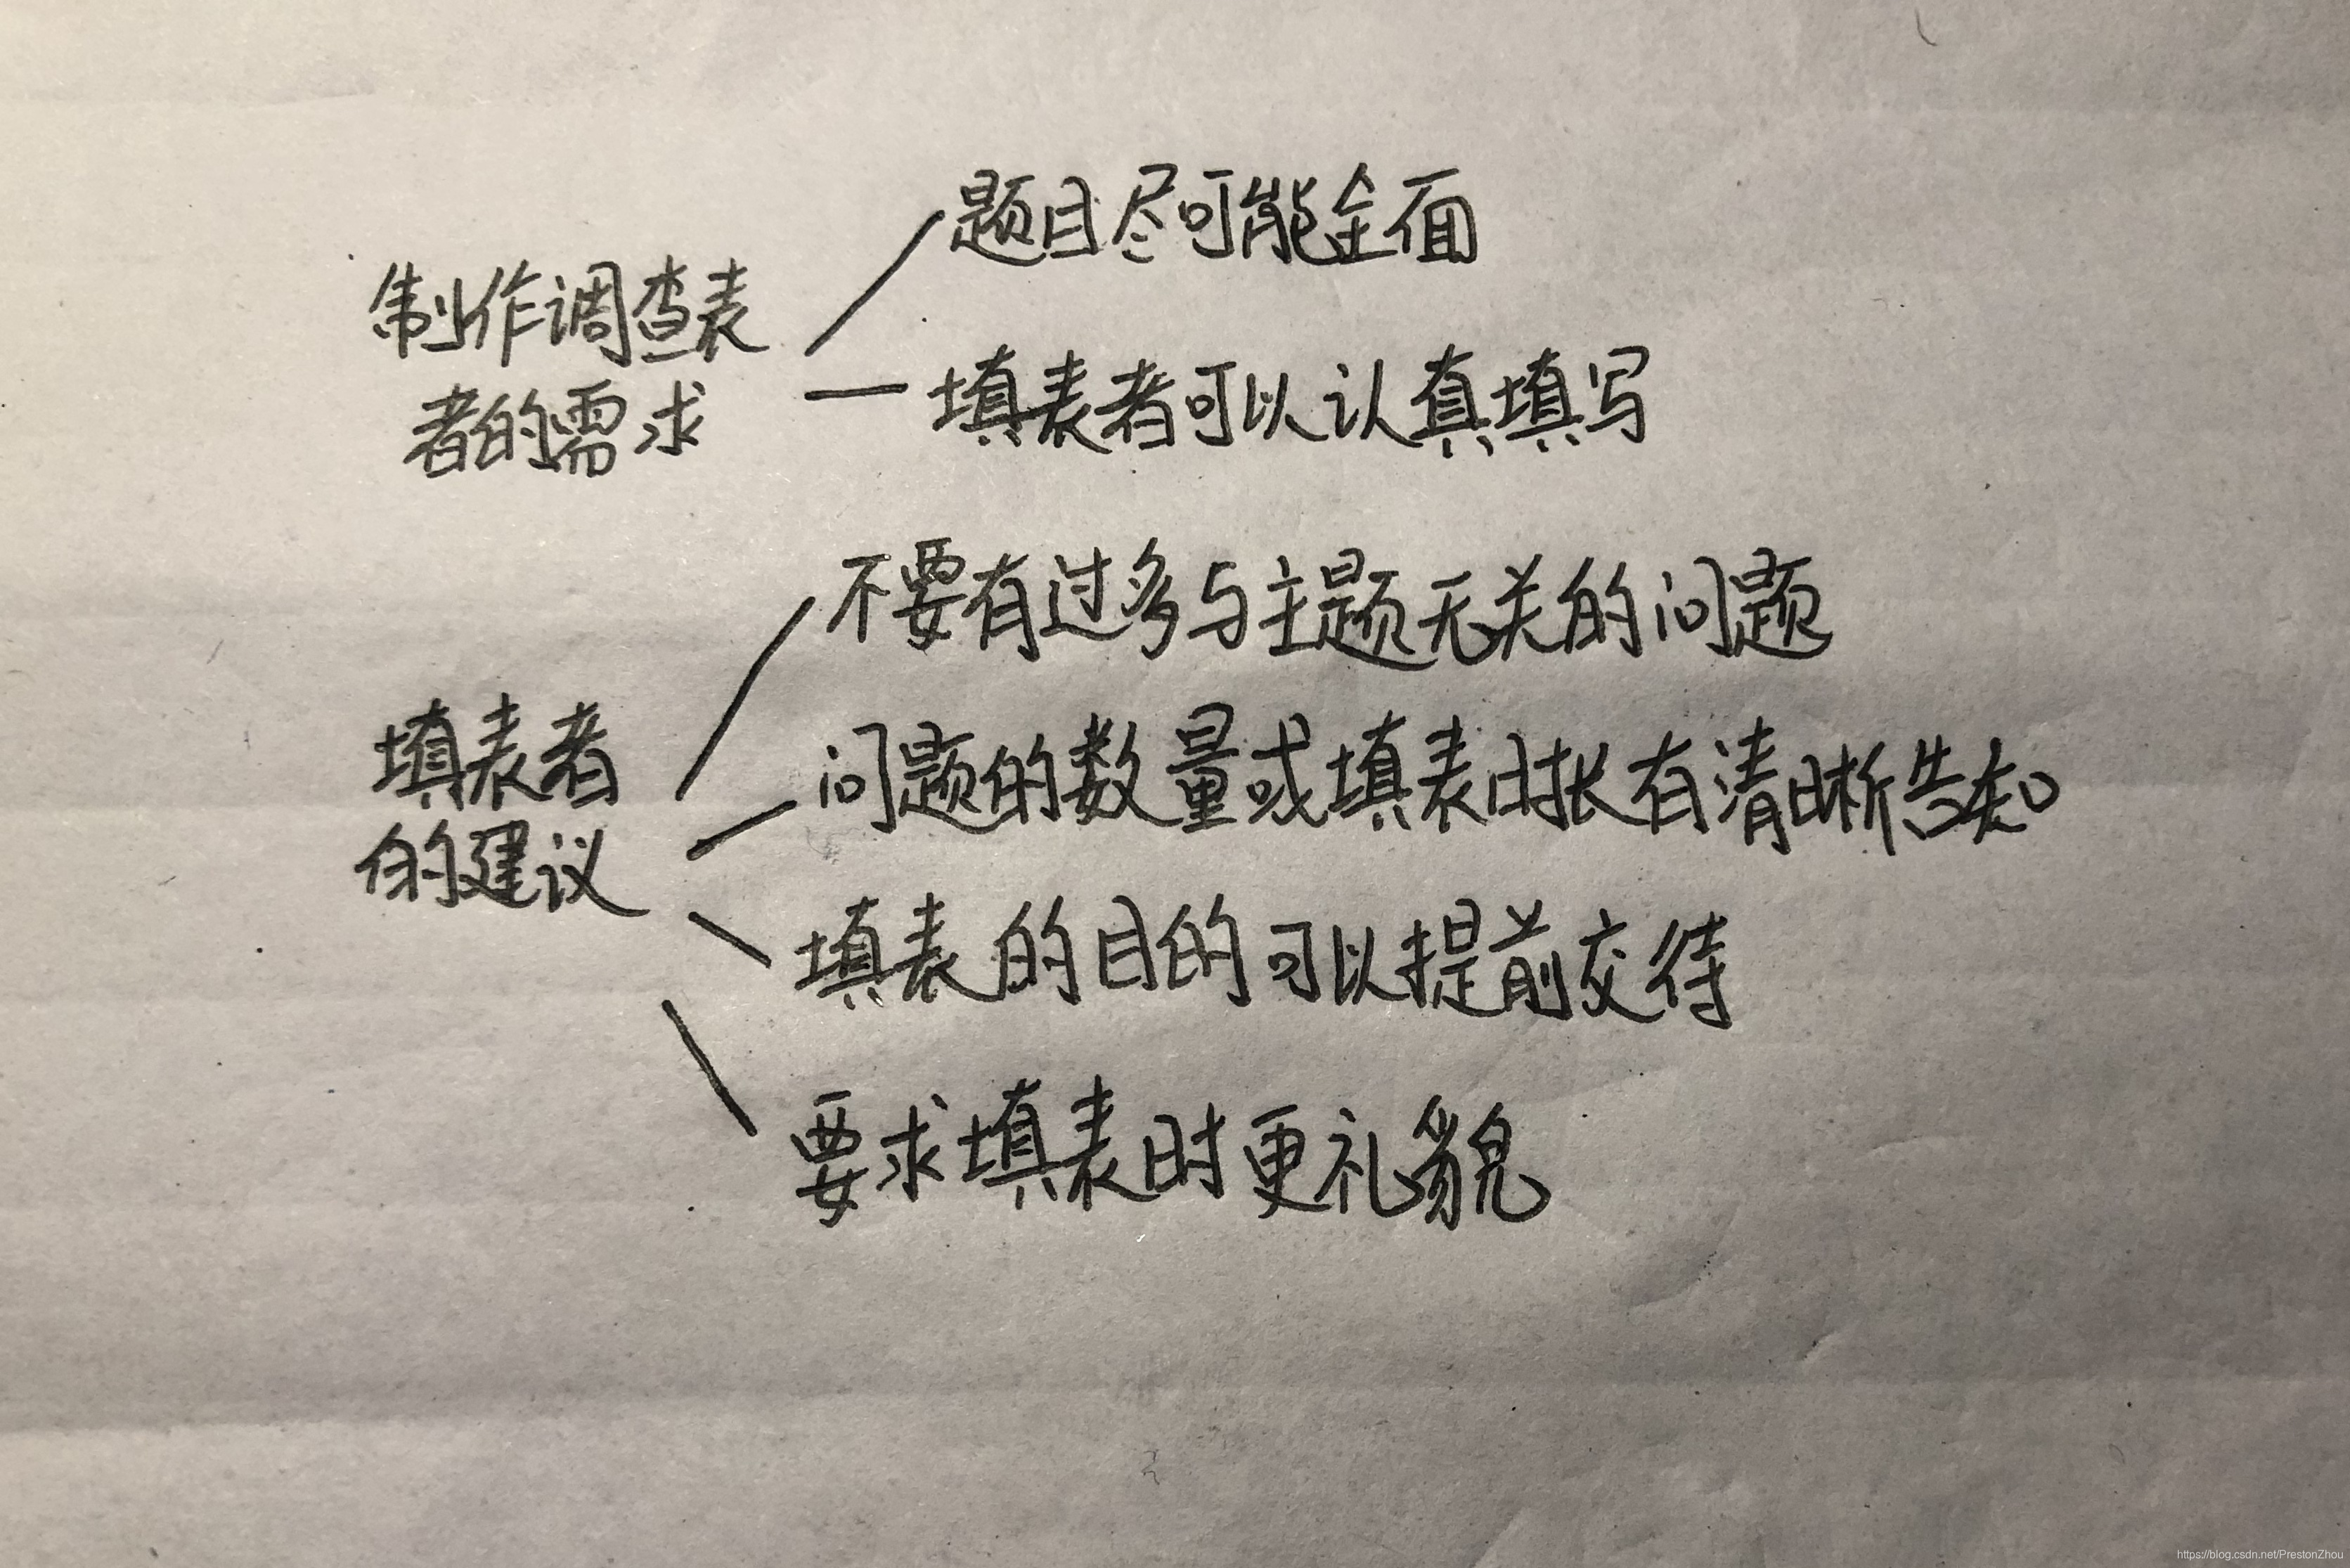 题目尽可能全面
制作调查表
者的需求
填表者可以认真填写
不要有过多与主题无关的问题
问题的数量或填表时长有清晰告知
填表者
的建议
填表的目的可以提前交待
要求填表时更礼貌
https://blog.csdn.net/PrestonZhou